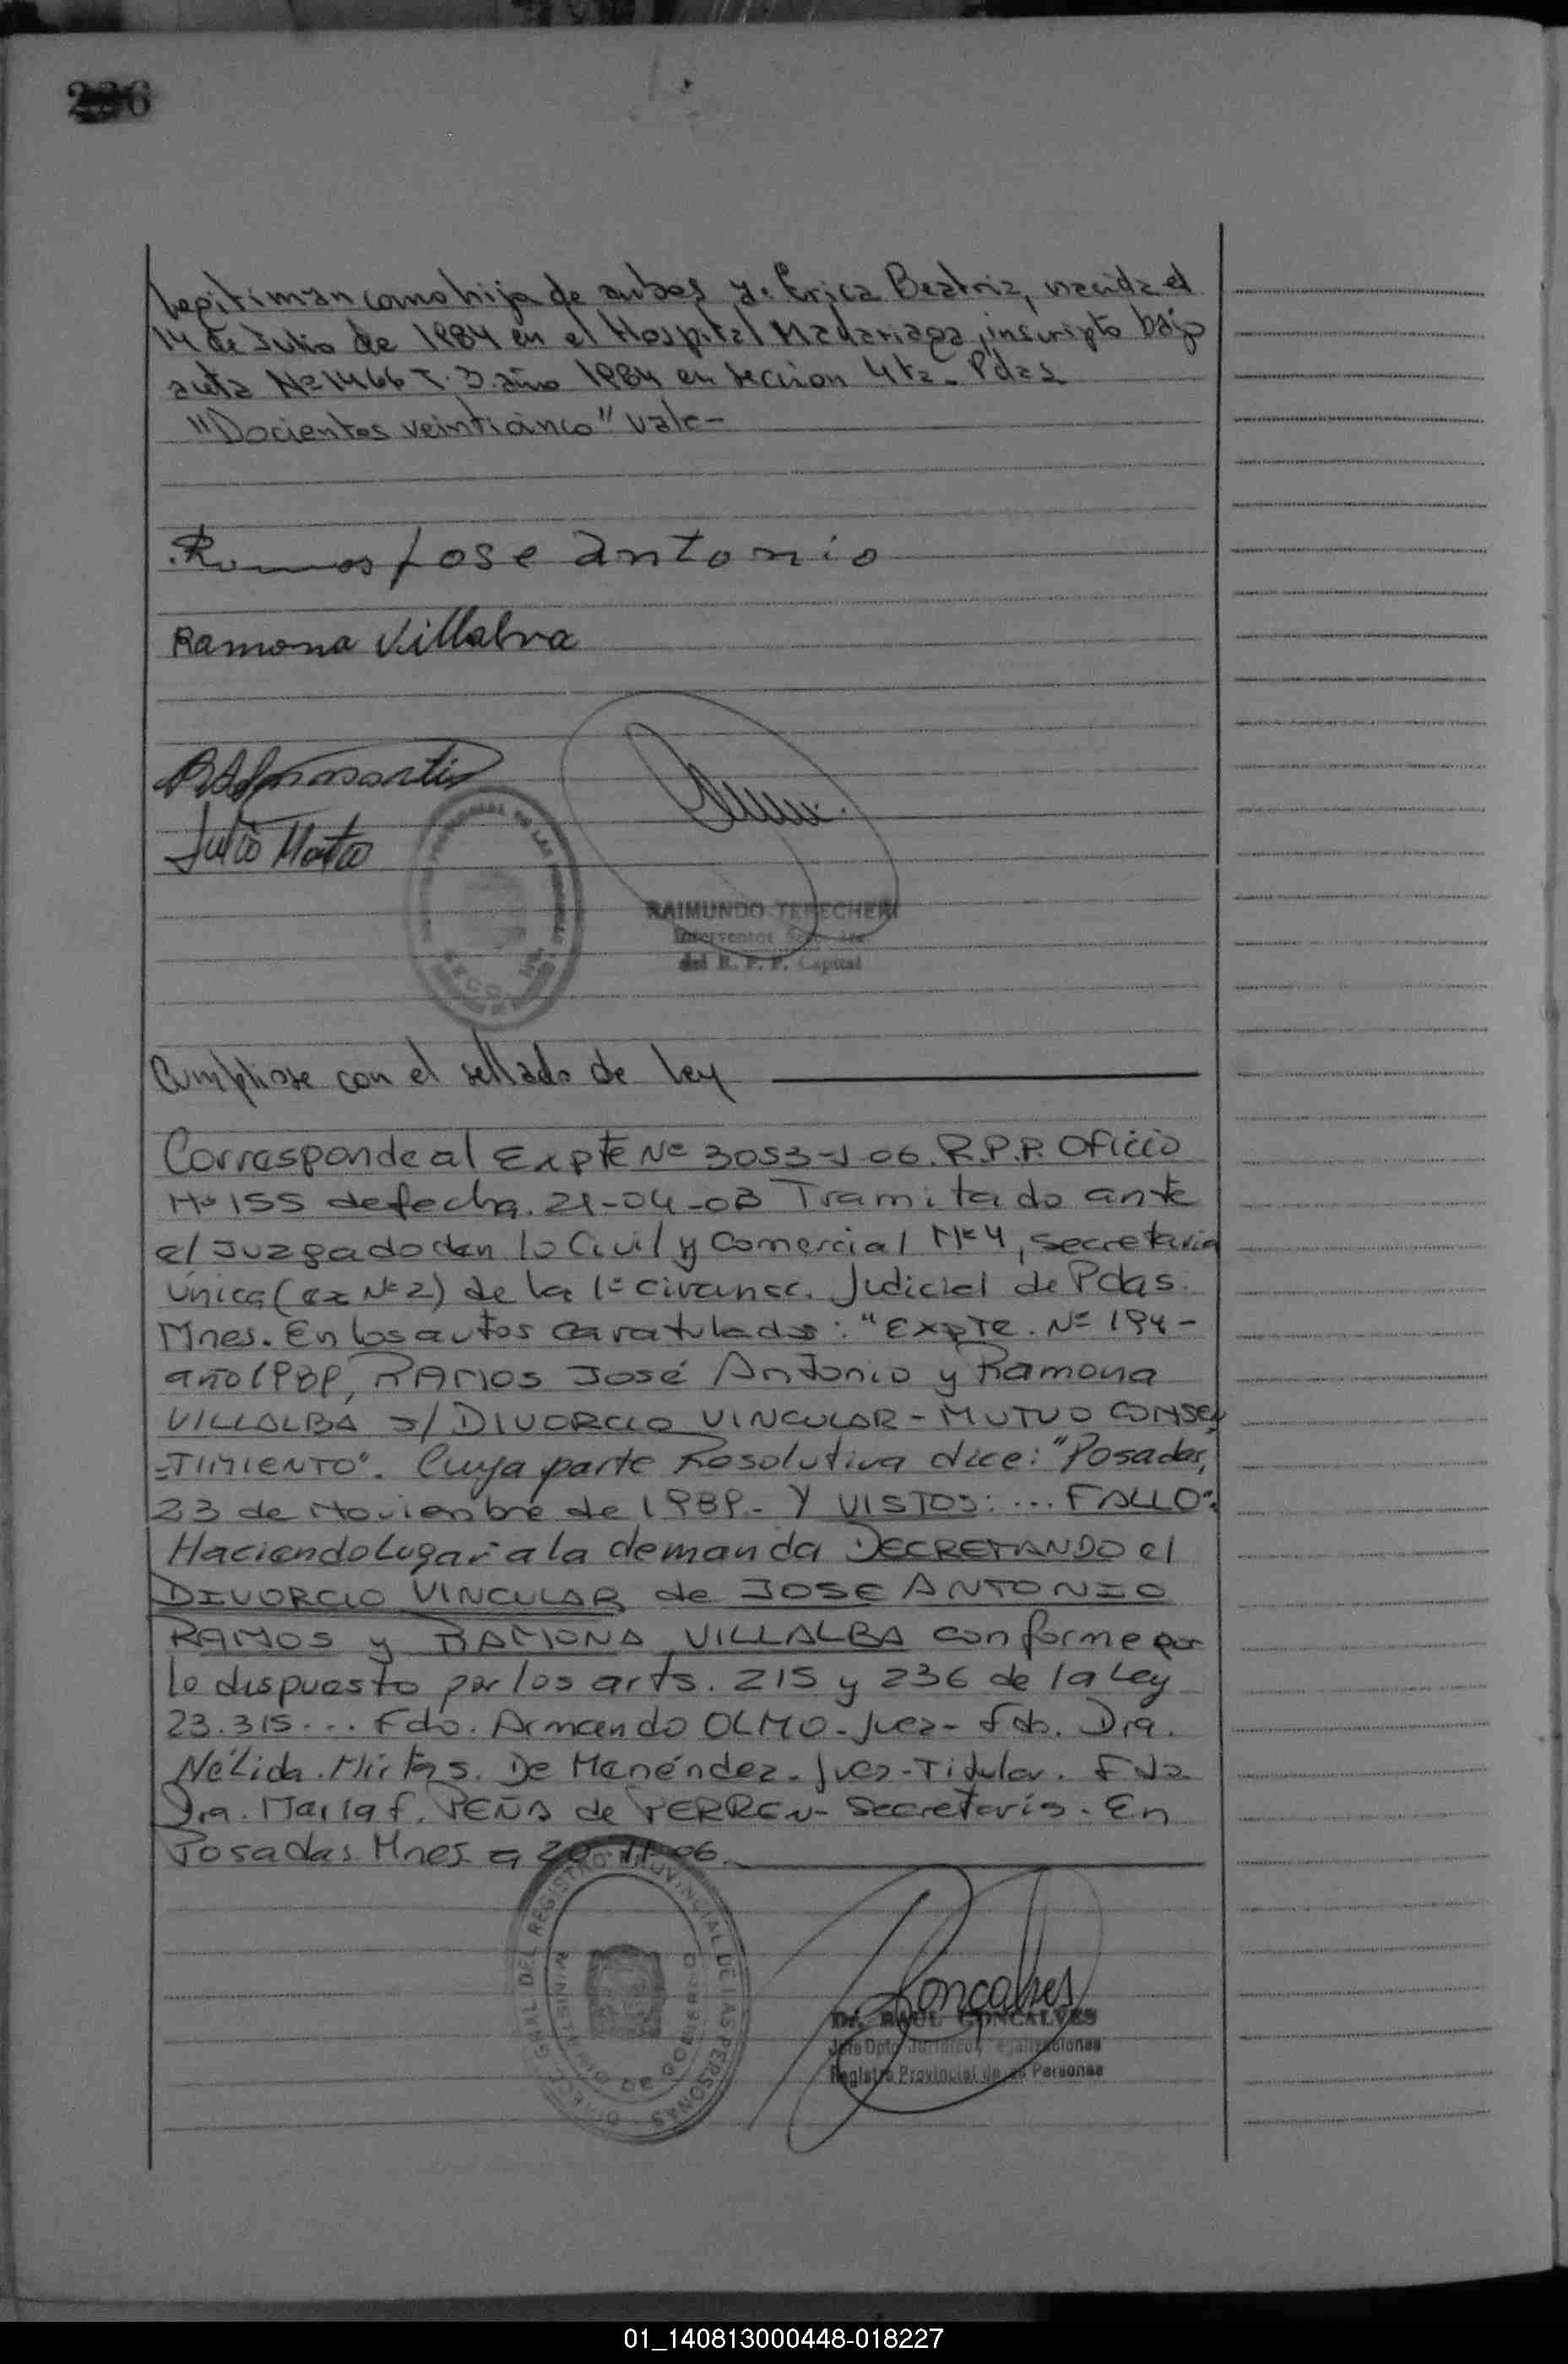 226
legitiman como hija de ambos y: Erica Beatriz, nacida el
14 de Julio de 1984 en el Hospital Madariaga, inscripto bajo
acta Nº 1466 T. 3. año 1984 en seccion 4ta- Pdas
"Docientos veinticinco" vale-
Ramos Jose antonio
Ramona Villalva
Julio
RAIMUNDO TERECHERI
Interventor
del R. P. P. Capital
Cumpliose con el sellado de ley
Corresponde al Expte Nº 3053-J 06. R.P.P. Oficio
Nº 155 de fecha. 21-04-03 Tramitado ante
el Juzgado den lo Civil y Comercial Nº 4, secretaria
Única (ex Nº 2) de la 1º circunsc. Judicial de Pdas.
Mnes. En los autos caratulados: "Expte. Nº 194-
año 1989, RAMOS José Antonio y Ramona
VILLALBA s/ DIVORCIO VINCULAR - MUTUO CONSEN
-TIMIENTO". Cuya parte Resolutiva dice: "Posadas,
23 de Noviembre de 1989.- Y VISTOS: ... FALLO:
Haciendo Lugar a la demanda DECRETANDO el
DIVORCIO VINCULAR de JOSE ANTONIO
RAMOS y RAMONA VILLALBA conforme por
lo dispuesto por los arts. 215 y 236 de la Ley
23.315... Fdo. Armando OLMO - Juez - Fdo. Dra.
Nélida Mirta S. De Menéndez - Juez - Titular. Fdo
Dra. María f. PEÑA de PERREN - Secretaria. En
Posadas. Mnes. a 20-11-06.
DIRECC. GRAL DEL REGISTRO PROVINCIAL DE LAS PERSONAS
MINISTERIO DE GOBIERNO
Goncalves
Dr. RAUL GONCALVES
Jefe Dpto.
Registro Provincial de las Personas
01_140813000448-018227